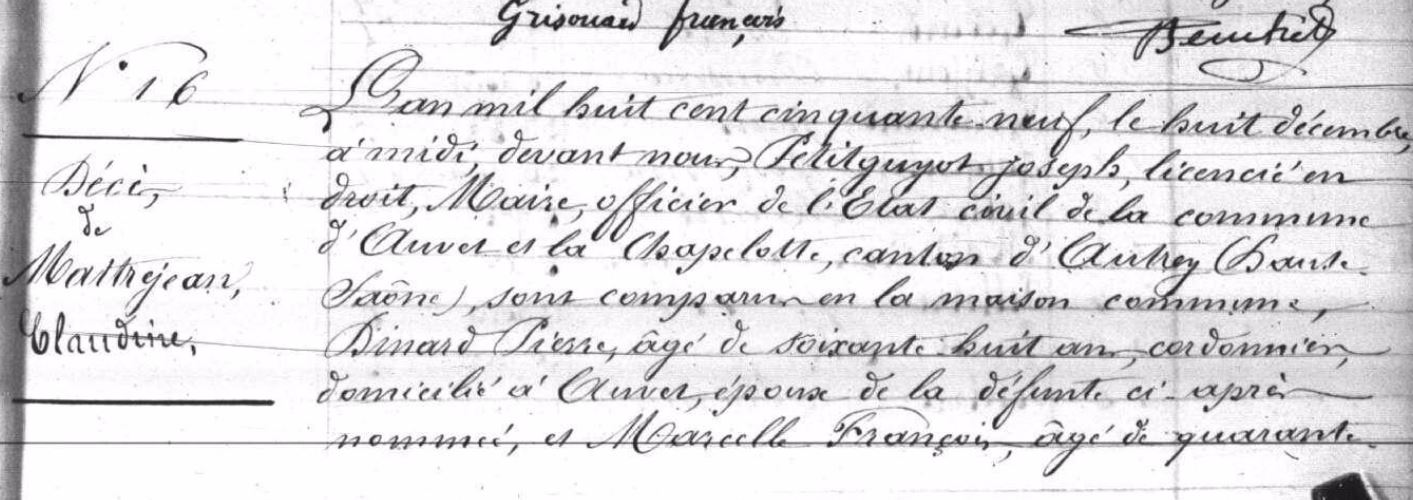 Grisouard françois
N° 16
Décès,
de
Maitrejean,
Claudine,
L'an mil huit cent cinquante-neuf, le huit décembre,
à midi, devant nous, Petitguyot joseph, licencié en
droit, Maire, officier de l'Etat civil de la commune
d'Auvet et la Chapelotte, canton d'Autrey (haute-
Saône), sont comparus en la maison commune,
Binard Pierre, âgé de soixante-huit ans, cordonnier,
domicilié à Auvet, époux de la défunte ci-après
nommée, et Marcelle François, âgé de quarante-